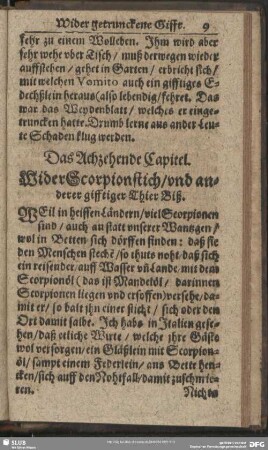 Wider getrunckene Gifft. 9
kehr zu einem Wolleben. Ihm wird aber
sehr wehe vber Tisch / muß derwegen wieder
auffstehen / gehet in Garten / erbricht sich /
mit welchen Vomito auch ein gifftiges E-
dechßlein heraus (also lebendig / fehret. Das
war das Weydenblatt / welches er einge-
truncken hatte. Drumb lerne aus ander Leu-
te Schaden klug werden.
Das Achzehende Capitel.
Wider Scorpionstich / vnd an-
derer gifftiger Thier Biß.
WEil in heissen Ländern / viel Scorpionen
sind / auch an statt vnserer Wantzen /
wol in Betten sich dörffen finden: daß sie
den Menschen steche / so thuts noht / daß sich
ein reisender / auff Wasser vñ Lande, mit dem
Scorpionöl (das ist Mandelöl / darinnen
Scorpionen liegen vnd ersoffen) versehe / da-
mit er / so balt jhn einer sticht / sich oder den
Ort damit salbe. Ich habs in Italien gese-
hen / daß etliche Wirte / welche jhre Gäste
wol versorgen / ein Gläßlein mit Scorpion-
öl / sampt einem Federlein / ans Bette hen-
cken / sich auff den Nohtfall / damit zuschmie-
ren.
Nichts